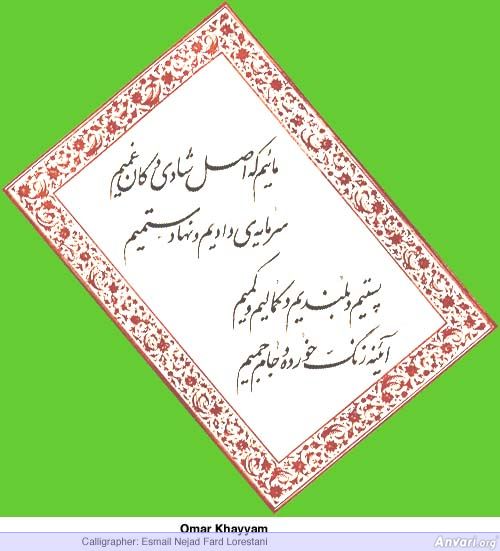 مائیم که اصل شادی و کان غمیم
سرمایه‌ی دادیم و نهاد ستمیم
پستیم و بلندیم و کمالیم و کمیم
آئینه زنگ خورده و جام جمیم
Omar Khayyam
Calligrapher: Esmail Nejad Fard Lorestani
Anvari.org